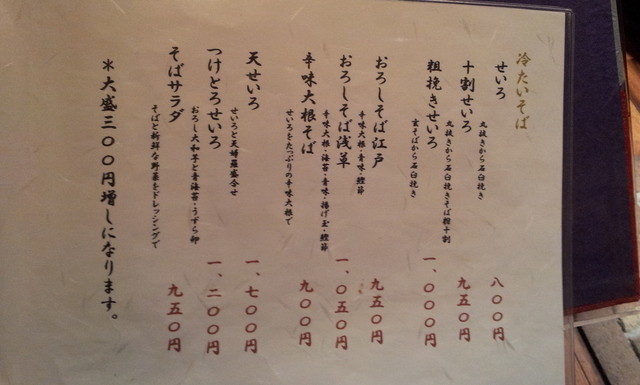 冷たいそば
せいろ 八〇〇円
丸抜きから石臼挽き
十割せいろ 九五〇円
丸抜きから石臼挽きそば粉十割
粗挽きせいろ 一、〇〇〇円
玄そばから石臼挽き
おろしそば江戸 九五〇円
辛味大根・青味・鰹節
おろしそば浅草 一、〇五〇円
辛味大根・海苔・青味・揚げ玉・鰹節
辛味大根そば 九〇〇円
せいろをたっぷりの辛味大根で
天せいろ 一、七〇〇円
せいろと天婦羅盛合せ
つけとろせいろ 一、二〇〇円
おろし大和芋と青海苔・うずら卵
そばサラダ 九五〇円
そばと新鮮な野菜をドレッシングで
＊大盛三〇〇円増しになります。